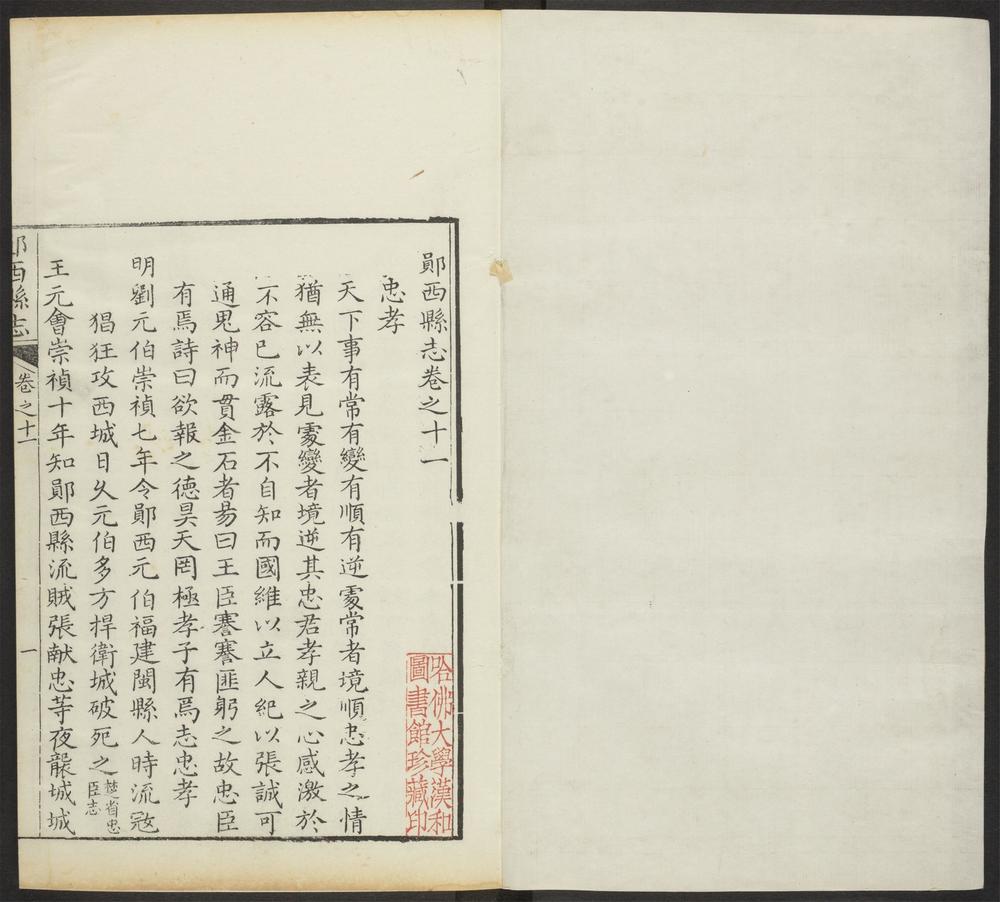 鄖西縣志卷之十一
忠孝
天下事有常有變有順有逆處常者境順忠孝之情
猶無以表見處變者境逆其忠君孝親之心感激於
不容已流露於不自知而國維以立人紀以張誠可
通鬼神而貫金石者易曰王臣蹇蹇匪躬之故忠臣
有焉詩曰欲報之德昊天罔極孝子有焉志忠孝
明劉元伯崇禎七年令鄖西元伯福建閩縣人時流寇
猖狂攻西城日久元伯多方捍衛城破死之楚省忠臣志
王元會崇禎十年知鄖西縣流賊張献忠等夜襲城城
鄖西縣志
卷之十一
一
哈佛大學漢和圖書館珍藏印